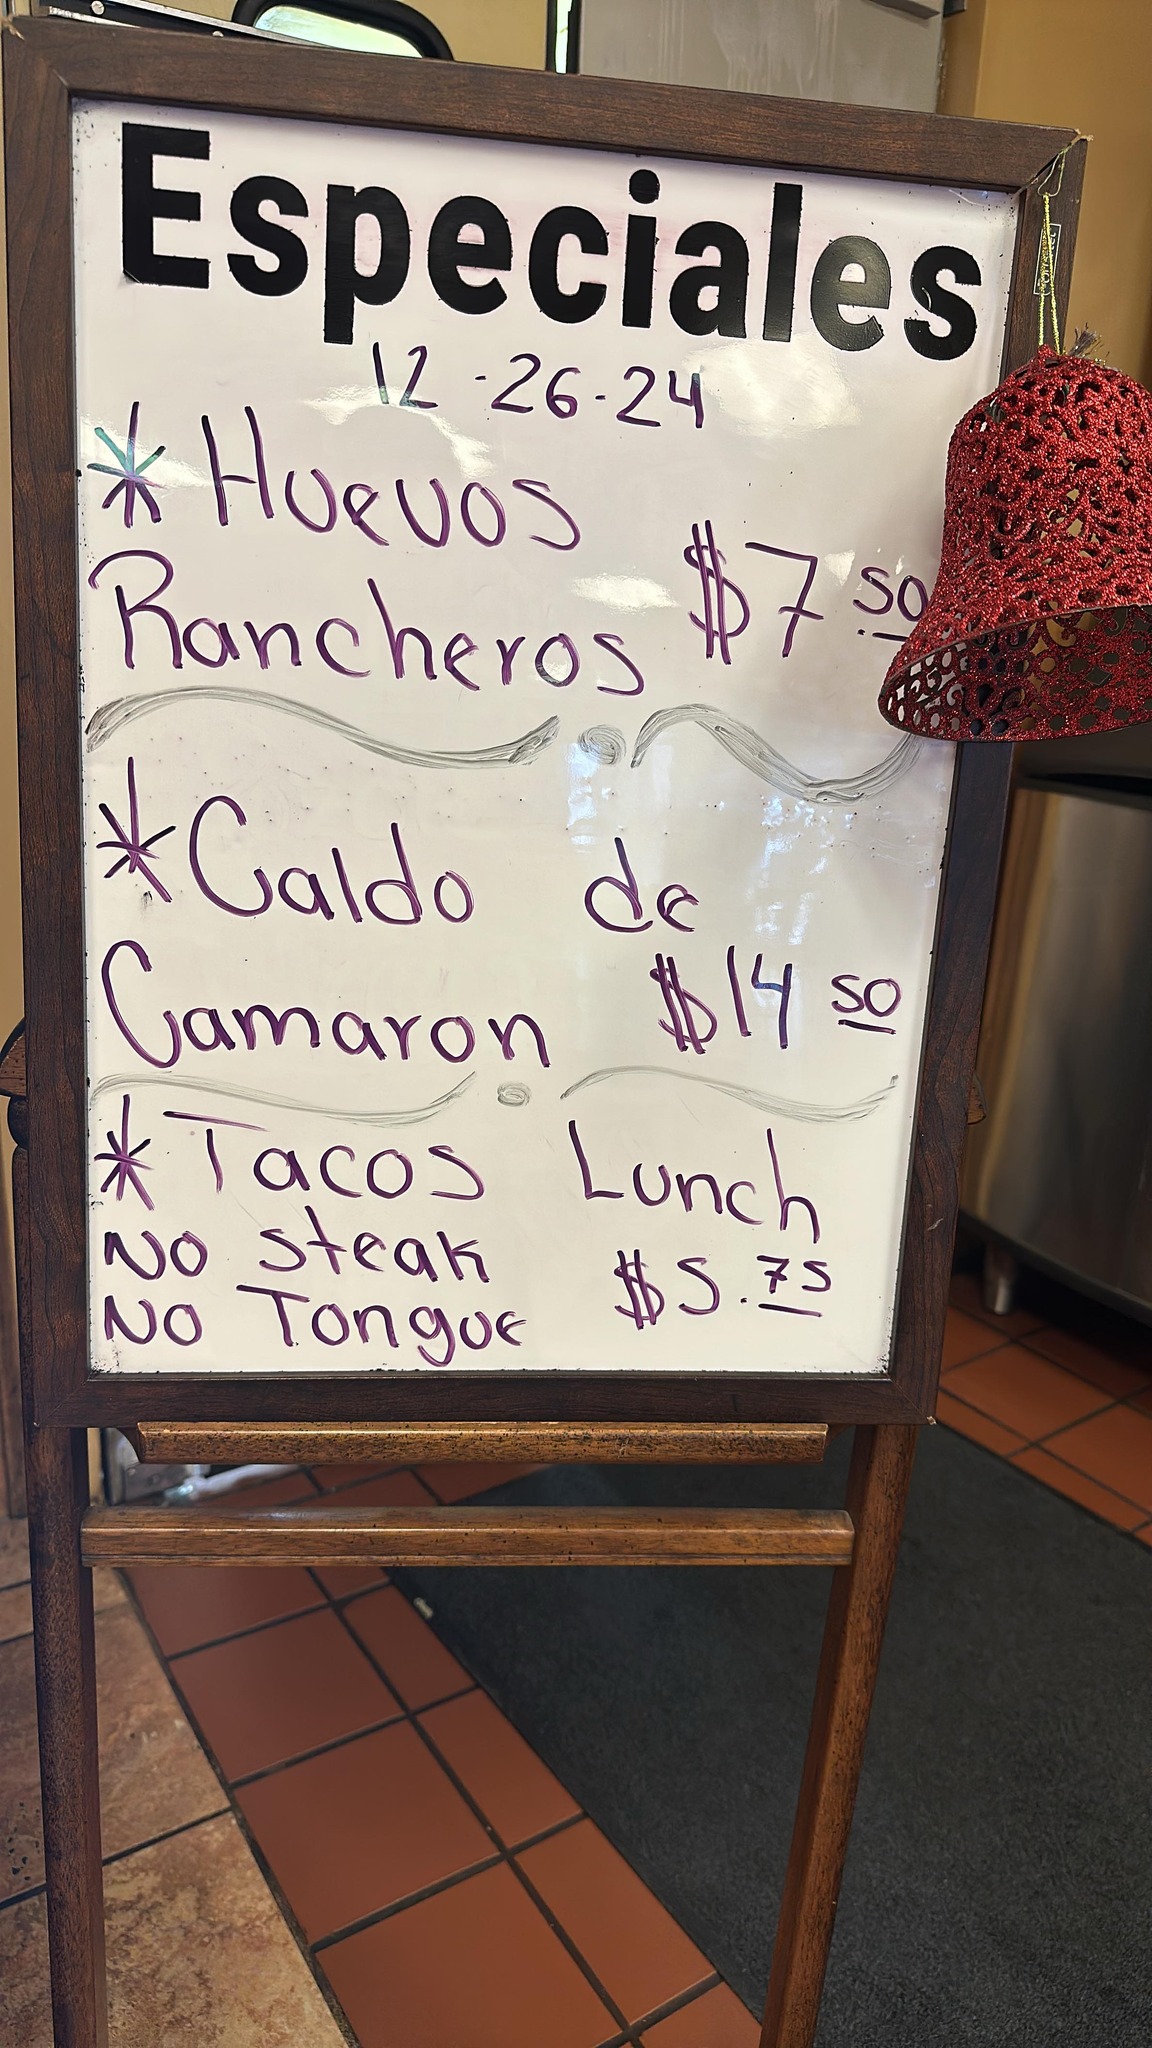 Especiales
12-26-24
* Huevos
Rancheros $7.50
* Caldo de
Camaron $14 50
* Tacos Lunch
No steak
No Tongue $5.75